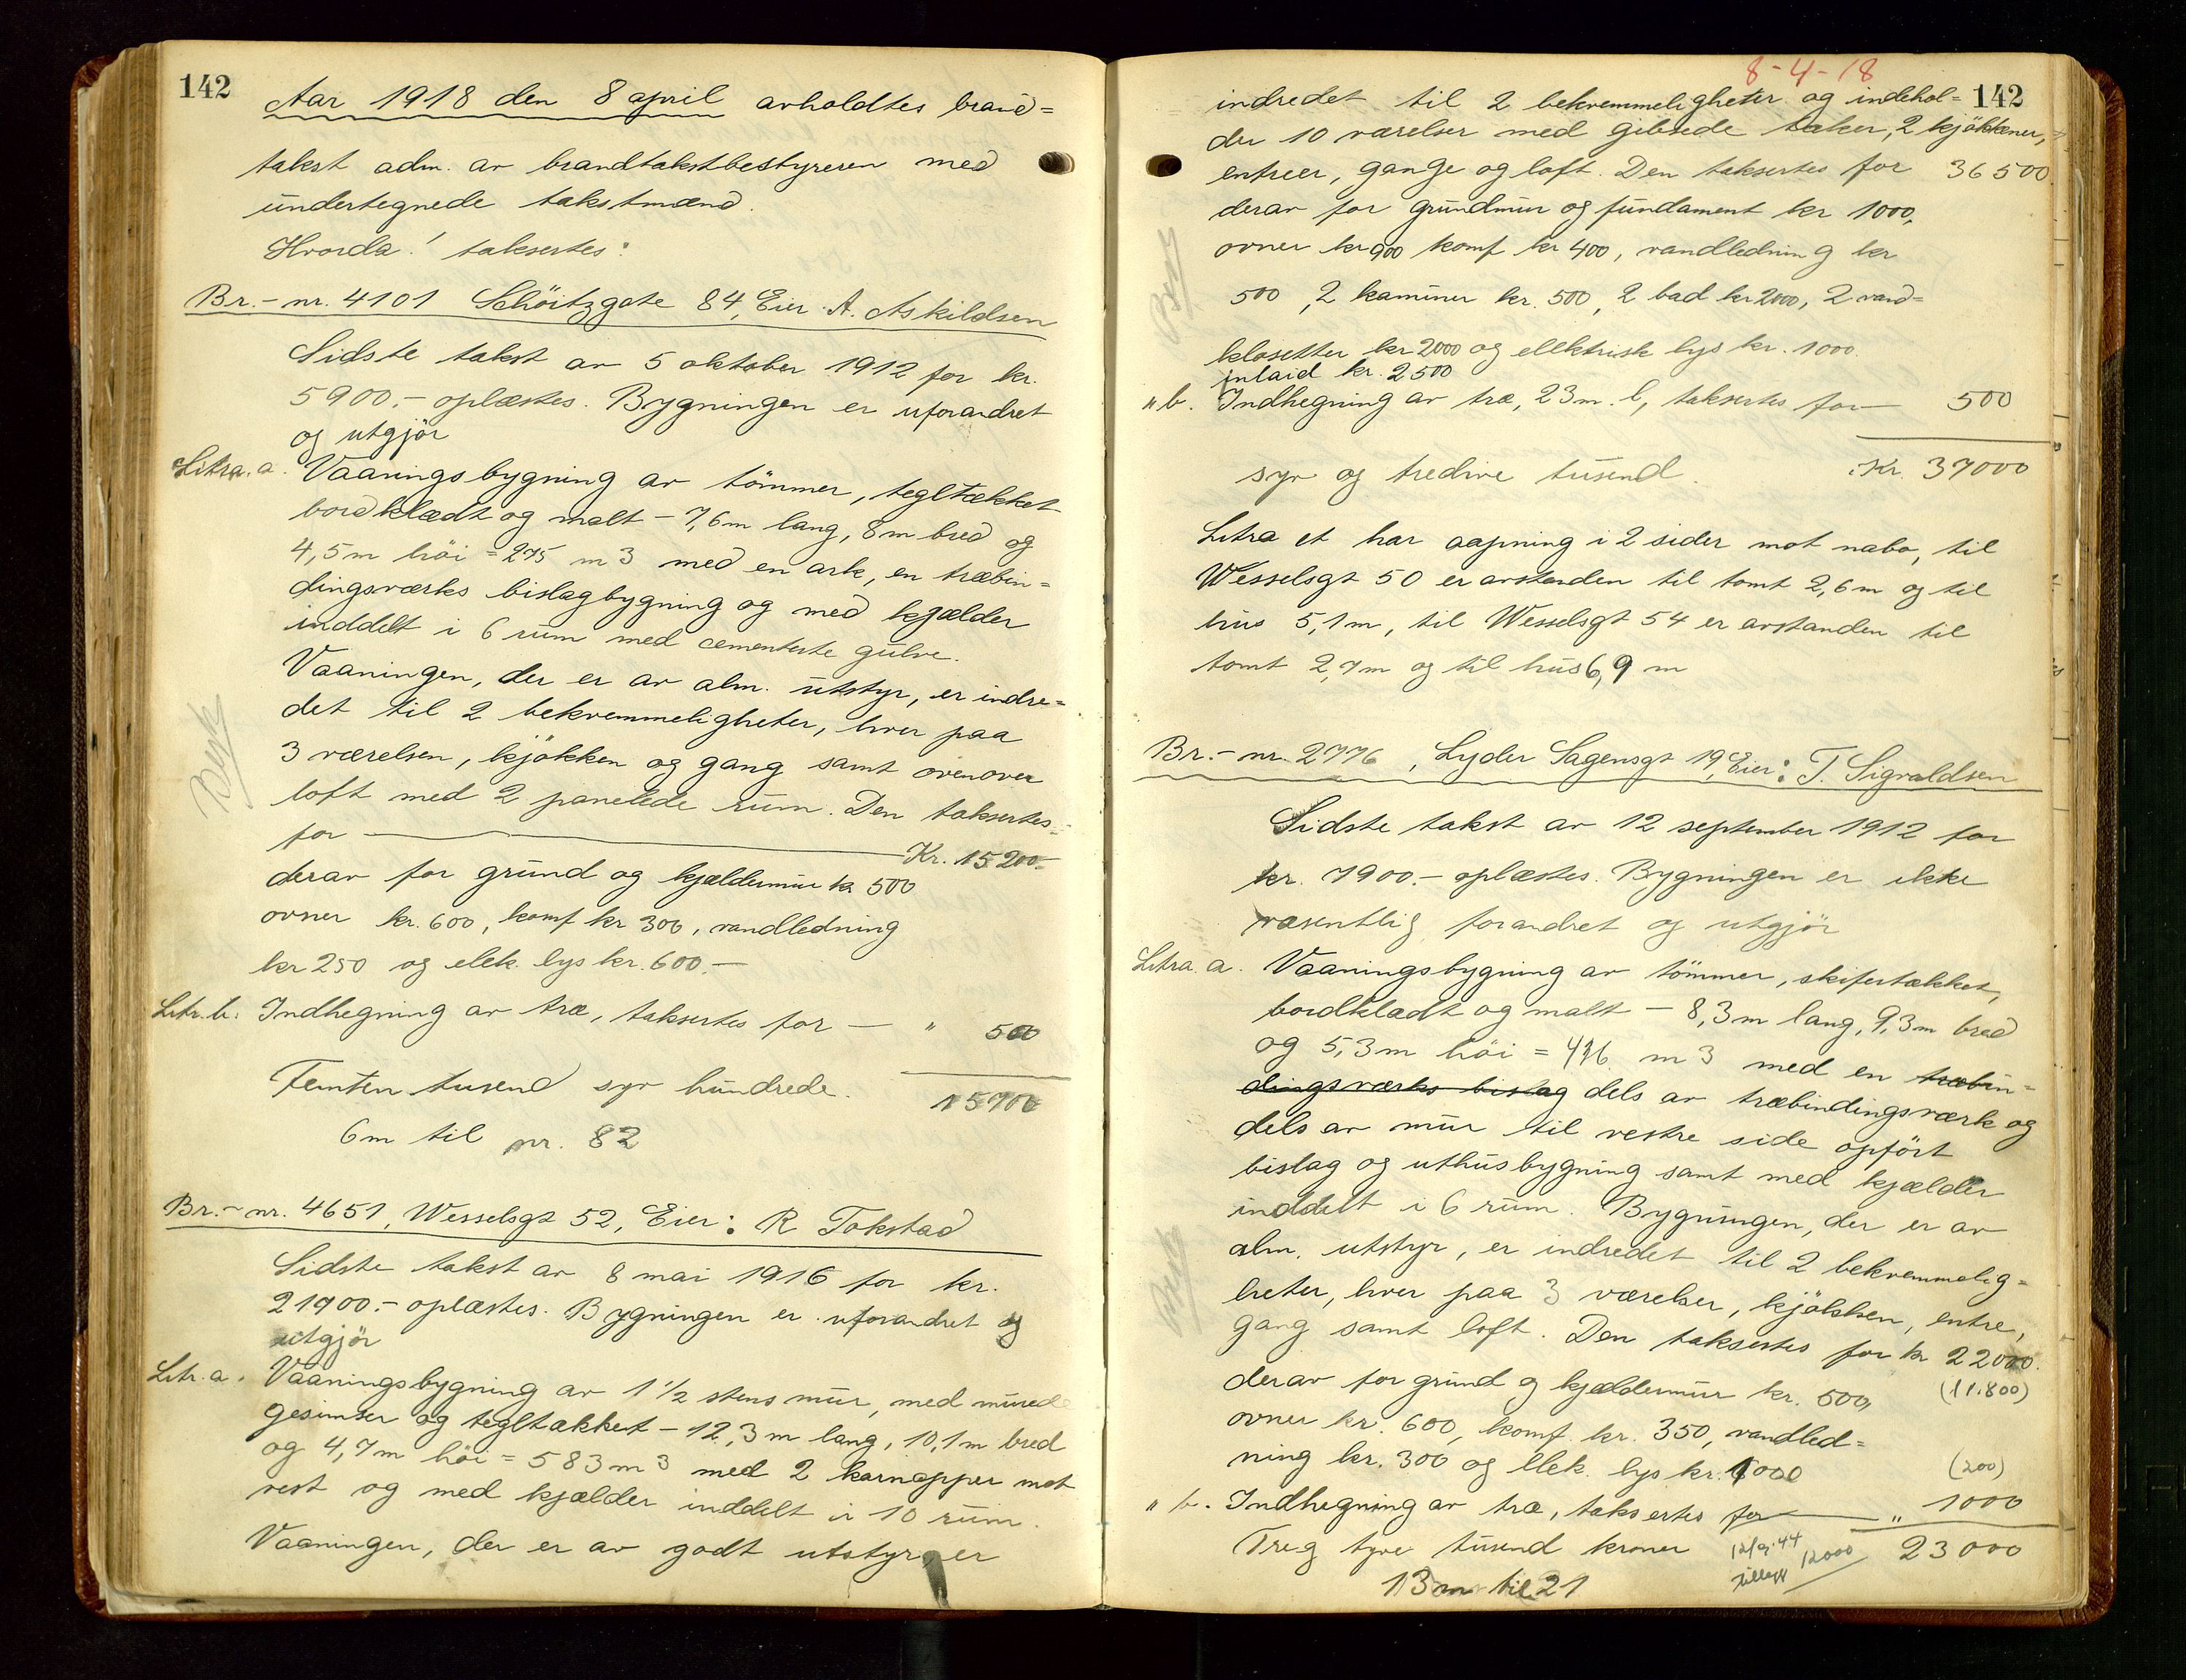 142
Aar 1918 den 8 april avholdtes brand=
takst adm. av brandtakstbestyreren med
undertegnede takstmænd.
Hvorda! taksertes:
Br.-nr. 4101 Schöitzgate 84, Eier A. Askildsen
Sidste takst av 5 oktober 1912 for kr.
5900.- oplæstes. Bygningen er uforandret
og utgjör
Litra. a. Vaaningsbygning av tömmer, tegltækket
bordklædt og malt - 7,6m lang, 8m bred og
4,5m höi = 275 m3 med en ark, en træbin=
dingsværks bislagbygning og med kjælder
inddelt i 6 rum med cementerte gulve.
Vaaningen, der er av alm. utstyr, er indre=
det til 2 bekvemmeligheter, hver paa
3 værelser, kjökken og gang samt ovenover
loft med 2 panelede rum. Den taksertes
for Kr. 15200.-
derav for grund og kjældermur kr 500
ovner kr. 600, komf kr 300, vandledning
kr 250 og elek. lys kr. 600.-
Litr. b. Indhegning av træ, taksertes for - " 500
Femten tusend syv hundrede. 15700
6m til nr. 82
Br.-nr. 4651, Wesselsgt 52, Eier: R Tokstad
Sidste takst av 8 mai 1916 for kr.
21900.- oplæstes. Bygningen er uforandret og
utgjör
Litr. a. Vaaningsbygning av 1 1/2 stens mur, med murede
gesimser og tegltækket - 12,3m lang, 10,1m bred
og 4,7m höi = 583m3 med 2 karnapper mot
vest og med kjælder inddelt i 10 rum.
Vaaningen, der er av godt utstyr, er
Bryk
8-4-18
142
indredet til 2 bekvemmeligheter og indehol=
der 10 værelser med gibsede taker, 2 kjökkener,
entreer, gange og loft. Den taksertes for 36500
derav for grundmur og fundament kr 1000,
ovner kr 900 komf kr 400, vandledning kr
500, 2 kaminer kr. 500, 2 bad kr 2000, 2 vand=
klosetter kr 2000 og ellektrisk lys kr. 1000.
inlaid kr. 2500
" b. Indhegning av træ, 23m. l, taksertes for 500
syv og tredive tusend. Kr. 37000
Litra a har aapning i 2 sider mot nabo, til
Wesselsgt 50 er avstanden til tomt 2,6m og til
hus 5,1m, til Wesselsgt 54 er avstanden til
tomt 2,7m og til hus 6,9 m
Br.-nr. 2776, Lyder Sagensgt 19, Eier: T. Sigvaldsen
Sidste takst av 12 september 1912 for
kr. 7900.- oplæstes. Bygningen er ikke
væsentlig forandret og utgjör
Litra. a. Vaaningsbygning av tömmer, skifertækket,
bordklædt og malt - 8,3m lang, 9,3m bred
og 5,3m höi = 416 m3 med en træbin=
dingsværks bislag dels av træbindingsværk og
dels av mur til vestre side opfört
bislag og uthusbygning samt med kjælder
inddelt i 6 rum. Bygningen, der er av
alm. utstyr, er indredet til 2 bekvemmelig=
heter, hver paa 3 værelser, kjökken, entre,
gang samt loft. Den taksertes for kr 22000.
derav for grund og kjældermur kr. 500, (11.800)
ovner kr. 600, komf. kr. 350, vandled=
ning kr. 300 og elek. lys kr. 1000 (200)
" b. Indhegning av træ, taksertes for " 1000
Tre og tyve tusend kroner 12/9.44 12000 23000
tillegg
13m til 21